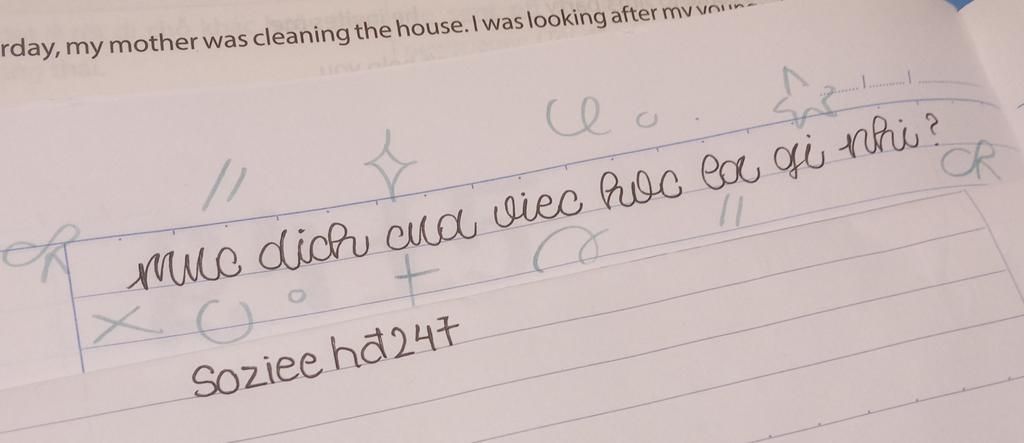 rday, my mother was cleaning the house. I was looking after my youn
muc dich cua viec hoc la gi nhi?
Soziee hđ247